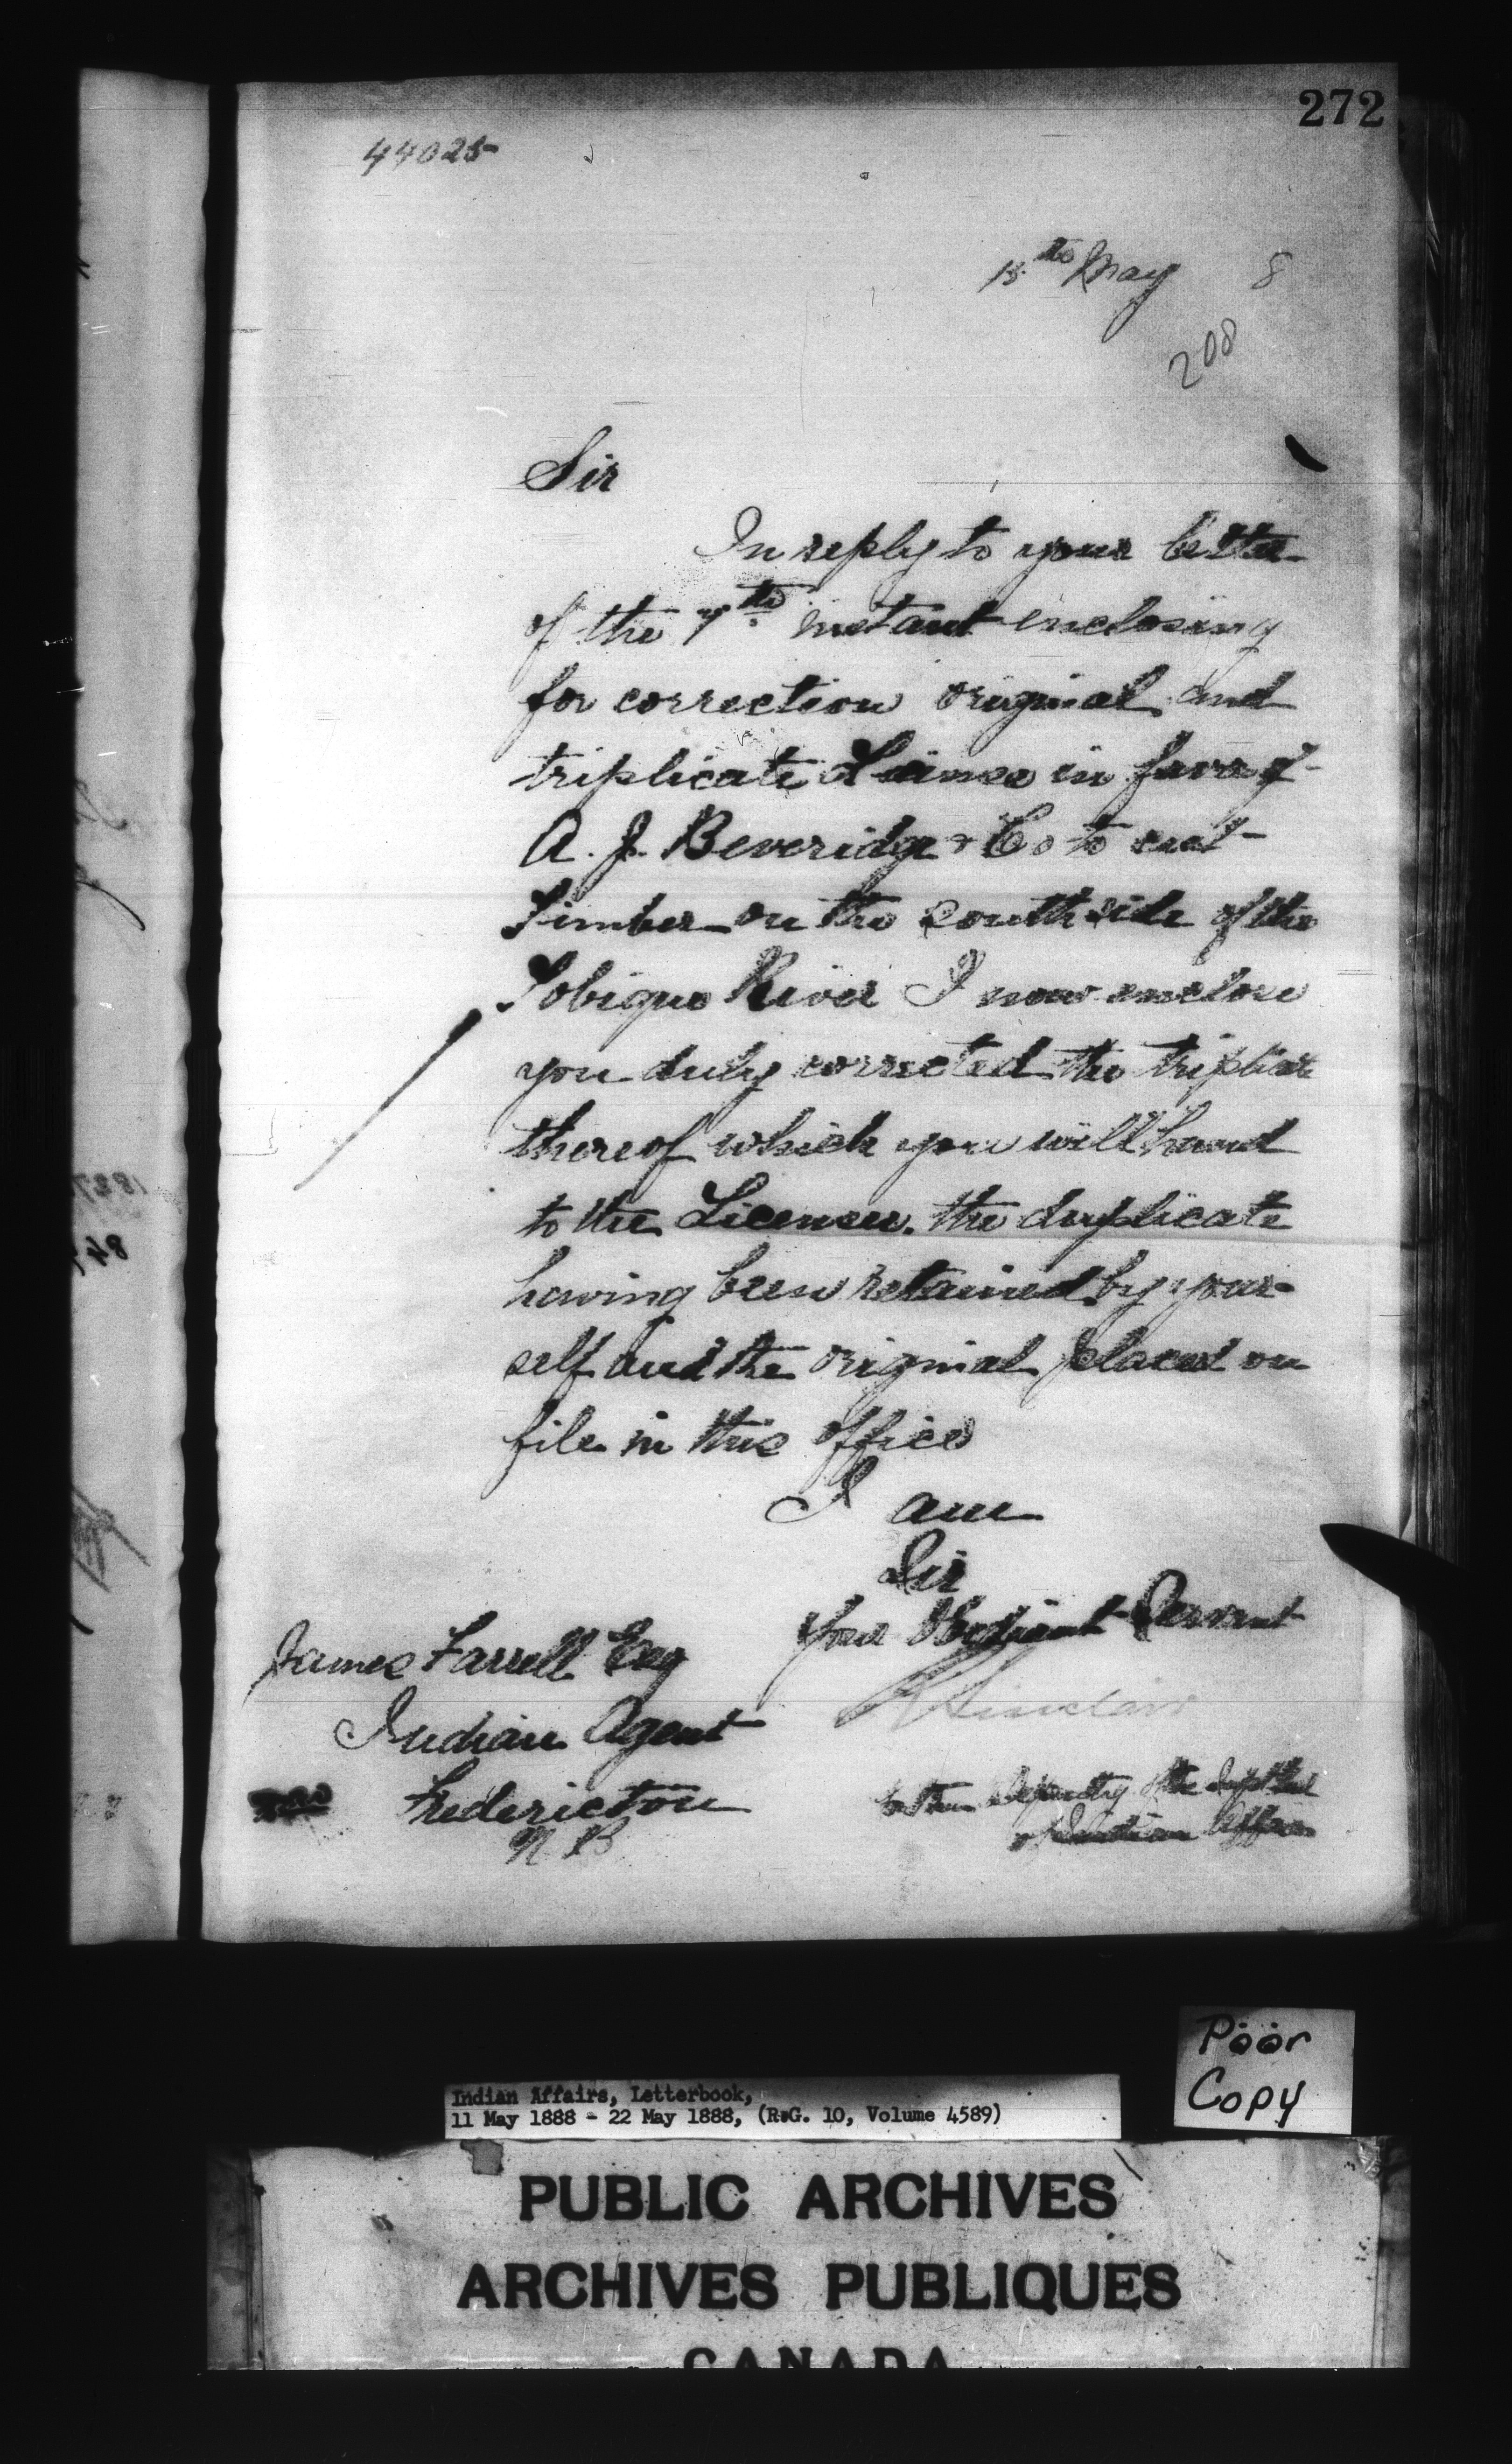 272
44025
15th May 8
208
Sir
In reply to your letter
of the 7th instant enclosing
for correction original and
triplicate License in favor of
A. J. Beveridge & Co to cut
Timber on the South side of the
Tobique River I now enclose
you duly corrected the triplicate
thereof which you will hand
to the Licensee. the duplicate
having been retained by your-
self and the original placed on
file in this office
I am
Sir
Your Obedient Servant
R Sinclair
for the Deputy of the Supt Genl
of Indian Affairs
James Farrell Esq
Indian Agent
Fredericton
N. B
Poor
Copy
Indian Affairs, Letterbook,
11 May 1888 - 22 May 1888, (R.G. 10, Volume 4589)
PUBLIC ARCHIVES
ARCHIVES PUBLIQUES
CANADA